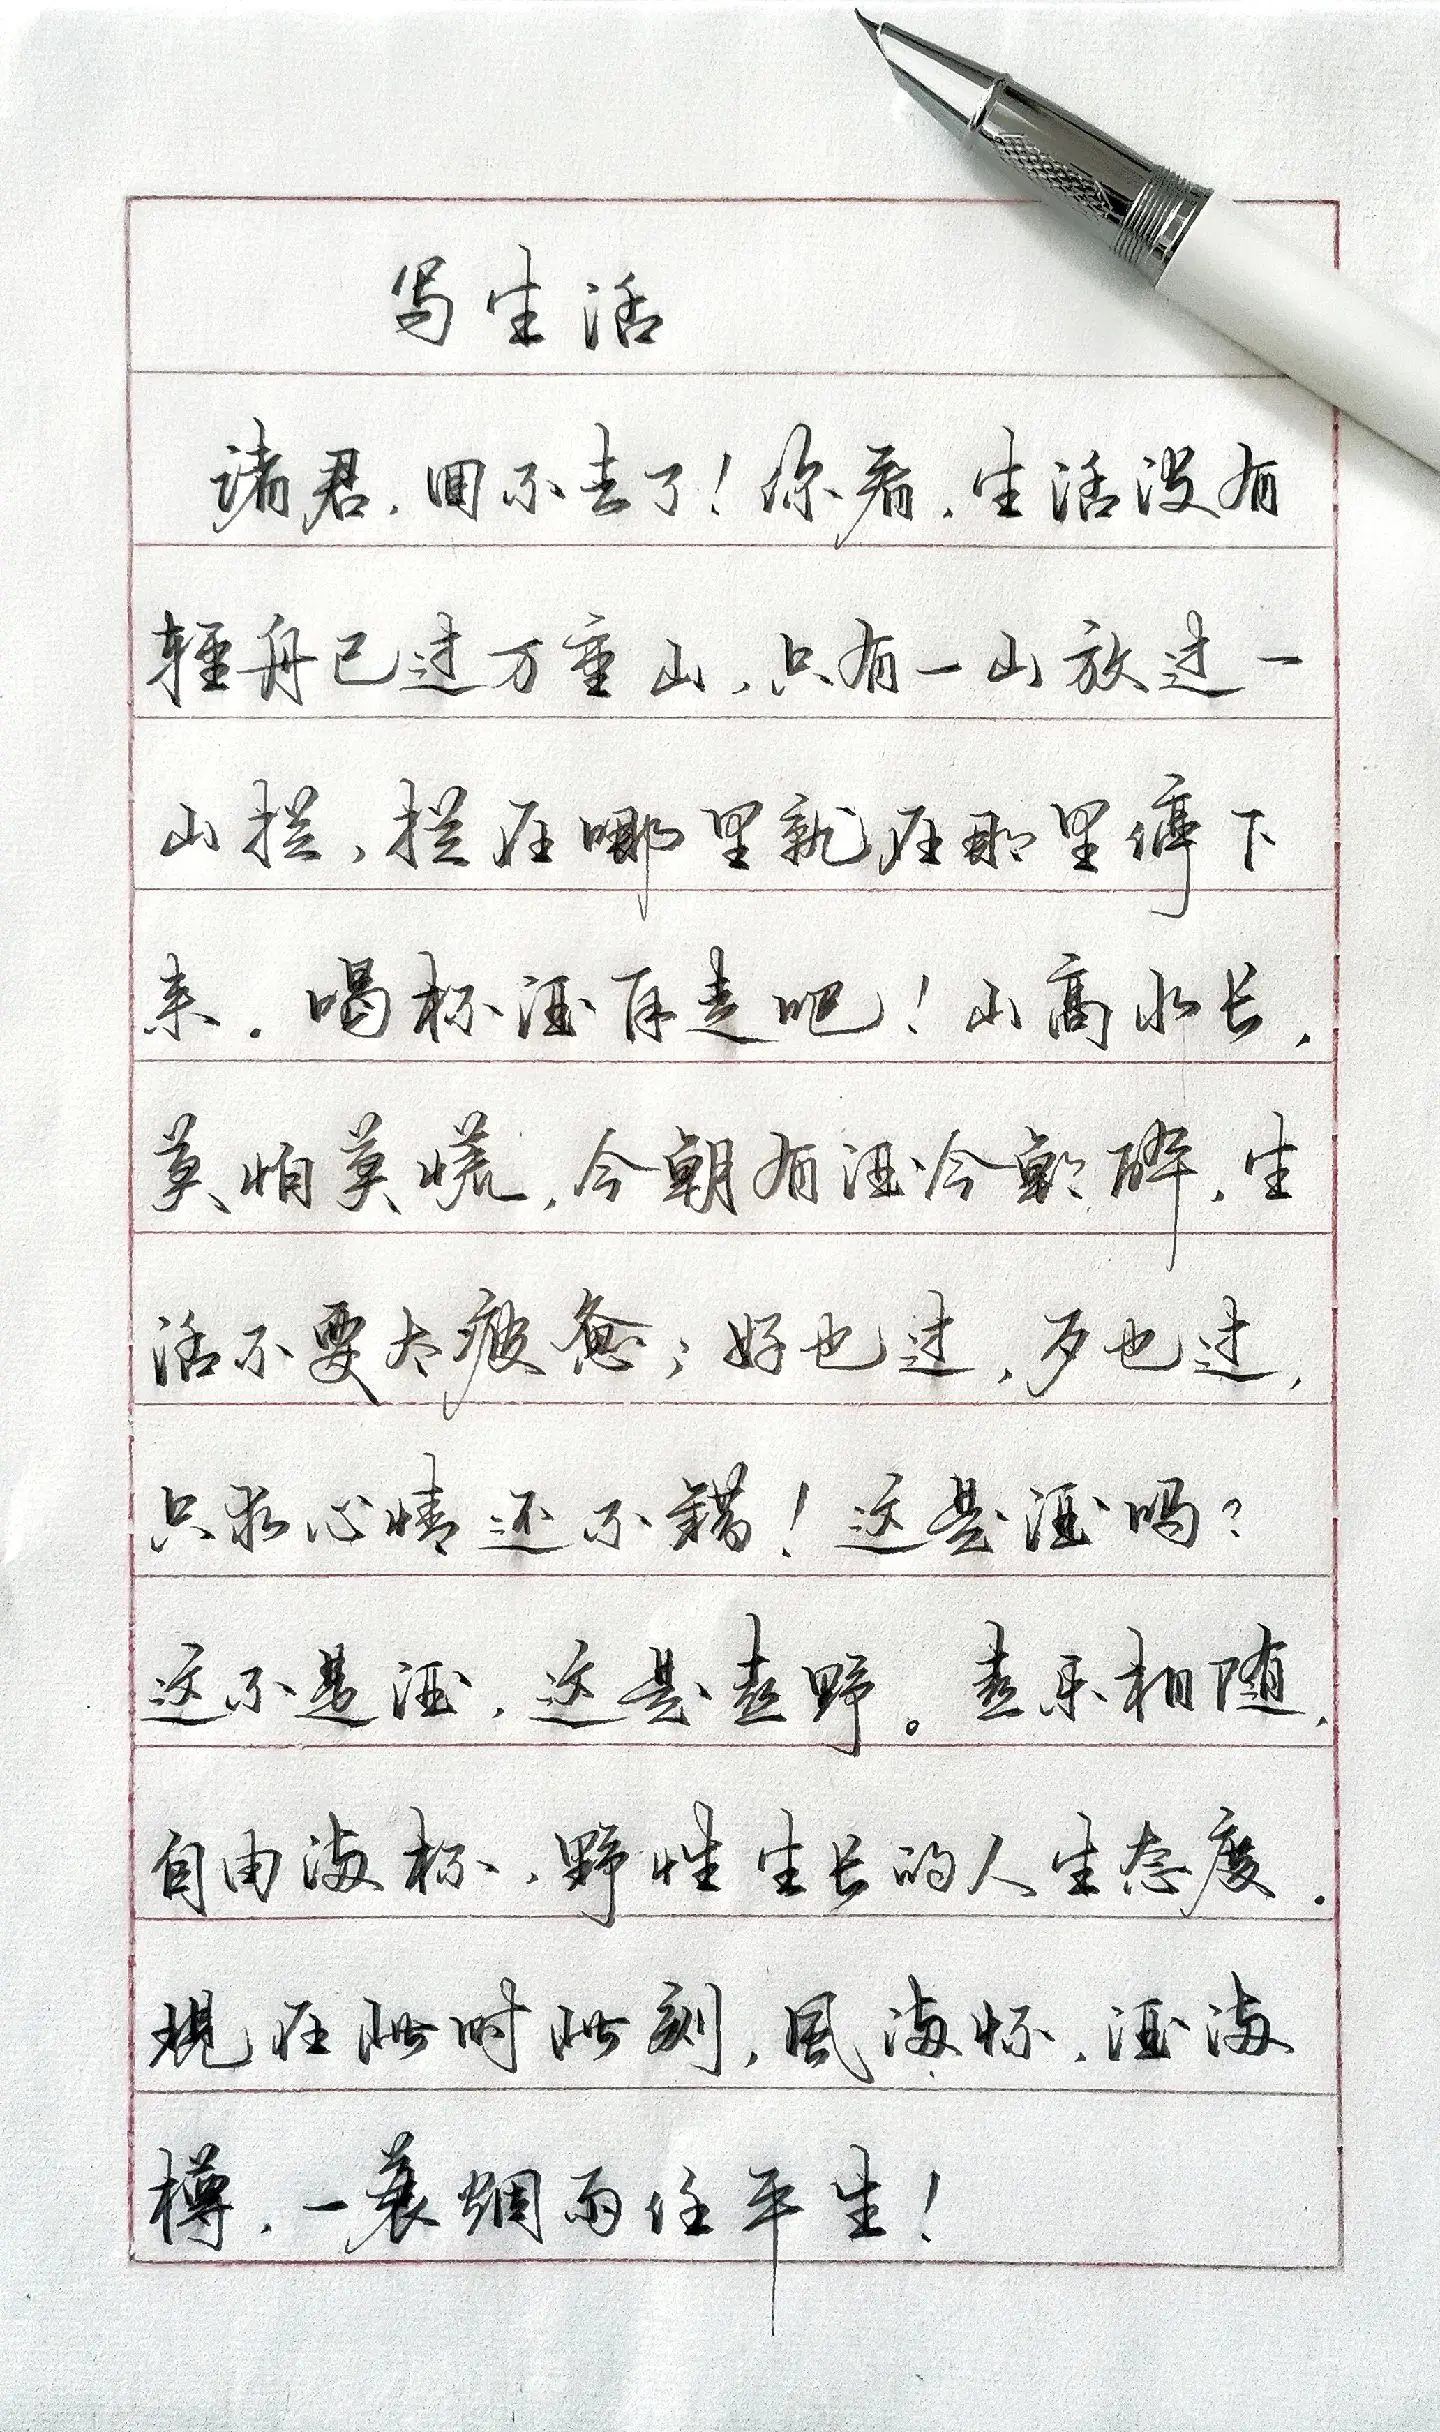 写生活
诸君，回不去了！你看，生活没有
轻舟已过万重山，只有一山放过一
山拦，拦在哪里就在那里停下
来。喝杯酒再走吧！山高水长，
莫怕莫慌，今朝有酒今朝醉，生
活不要太疲惫；好也过，歹也过，
只求心情还不错！这是酒吗？
这不是酒，这是喜野。喜乐相随，
自由满杯，野性生长的人生态度。
现在此时此刻，风满怀，酒满
樽，一蓑烟雨任平生！